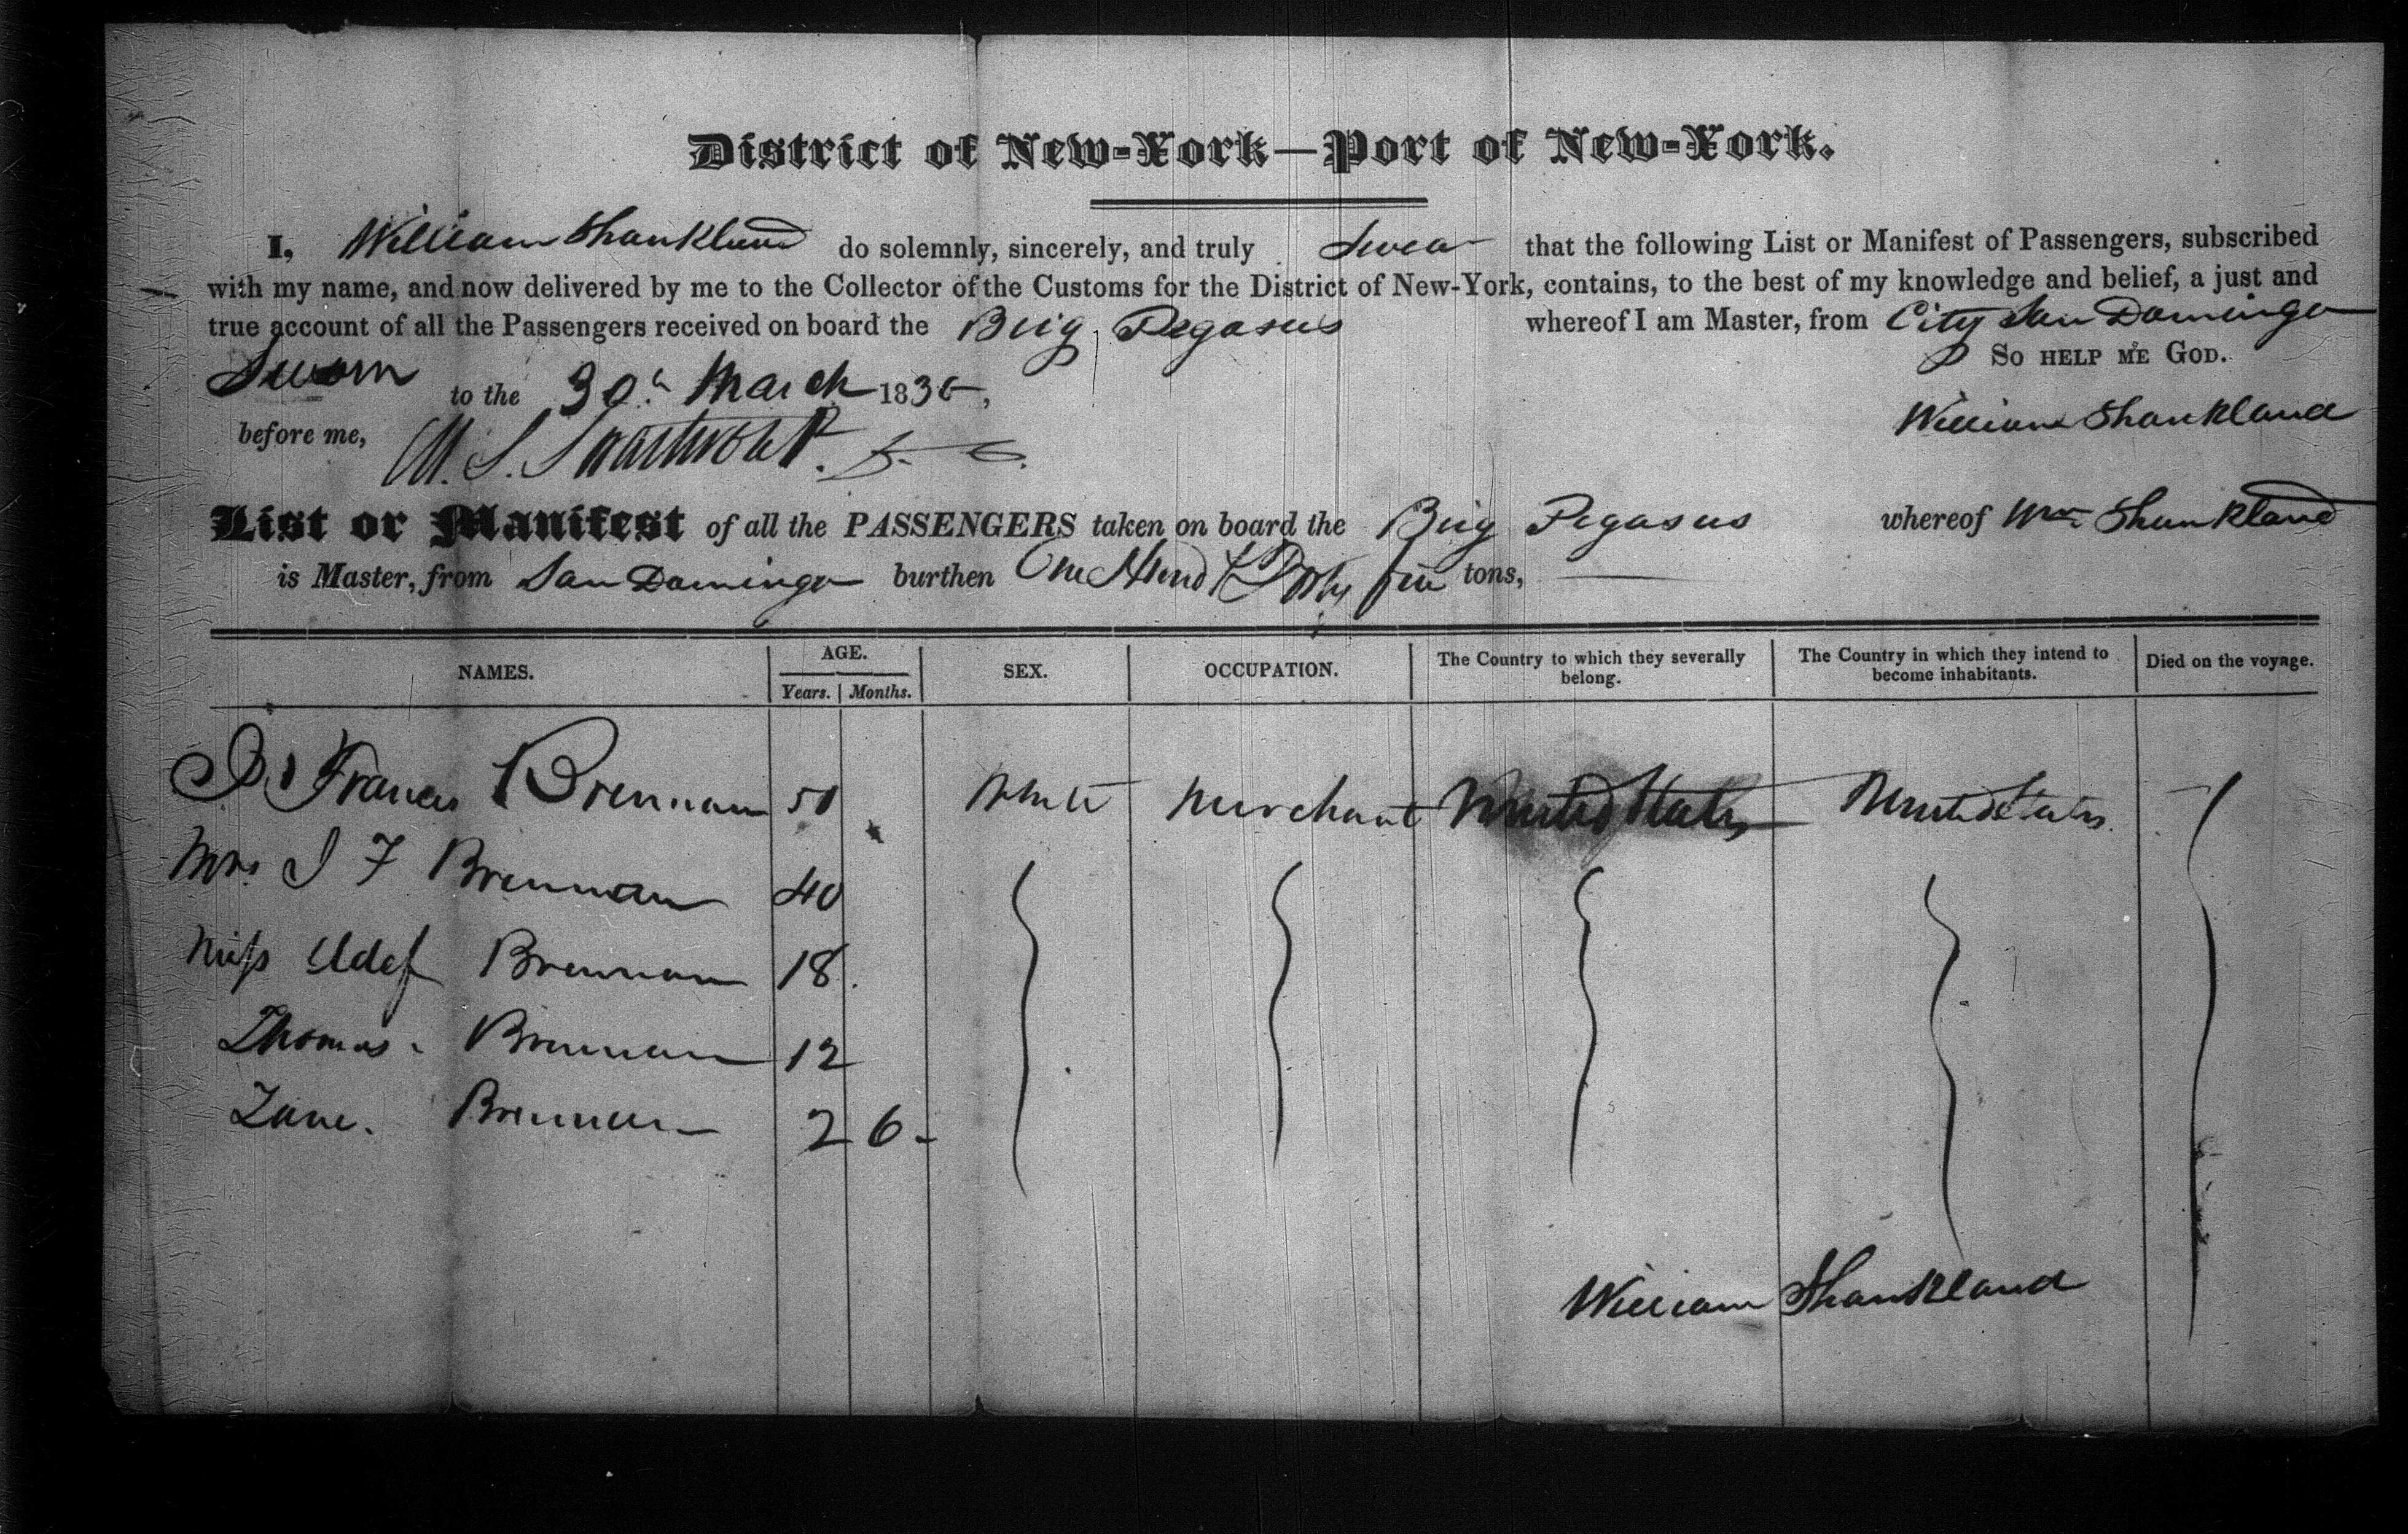 District of New-York—Port of New-York.
I, William Shankland do solemnly, sincerely, and truly Swear that the following List or Manifest of Passengers, subscribed
with my name, and now delivered by me to the Collector of the Customs for the District of New-York, contains, to the best of my knowledge and belief, a just and
true account of all the Passengers received on board the Brig Pegasus whereof I am Master, from City San Domingo
So help me God.
Sworn to the 30th March 1835,
William Shankland
before me, M. S. Swartwout. D. C.
List or Manifest of all the PASSENGERS taken on board the Brig Pegasus whereof Wm Shankland
is Master, from San Domingo burthen One Hund & Forty five tons,
NAMES. AGE. SEX. OCCUPATION. The Country to which they severally belong. The Country in which they intend to become inhabitants. Died on the voyage.
Years. Months.
Francis Brennan 50 White Merchant United States United States
Mrs J F Brennan 40
Miss Brennan 18
Thomas Brennan 12
Jane. Brennan 2 6
William Shankland